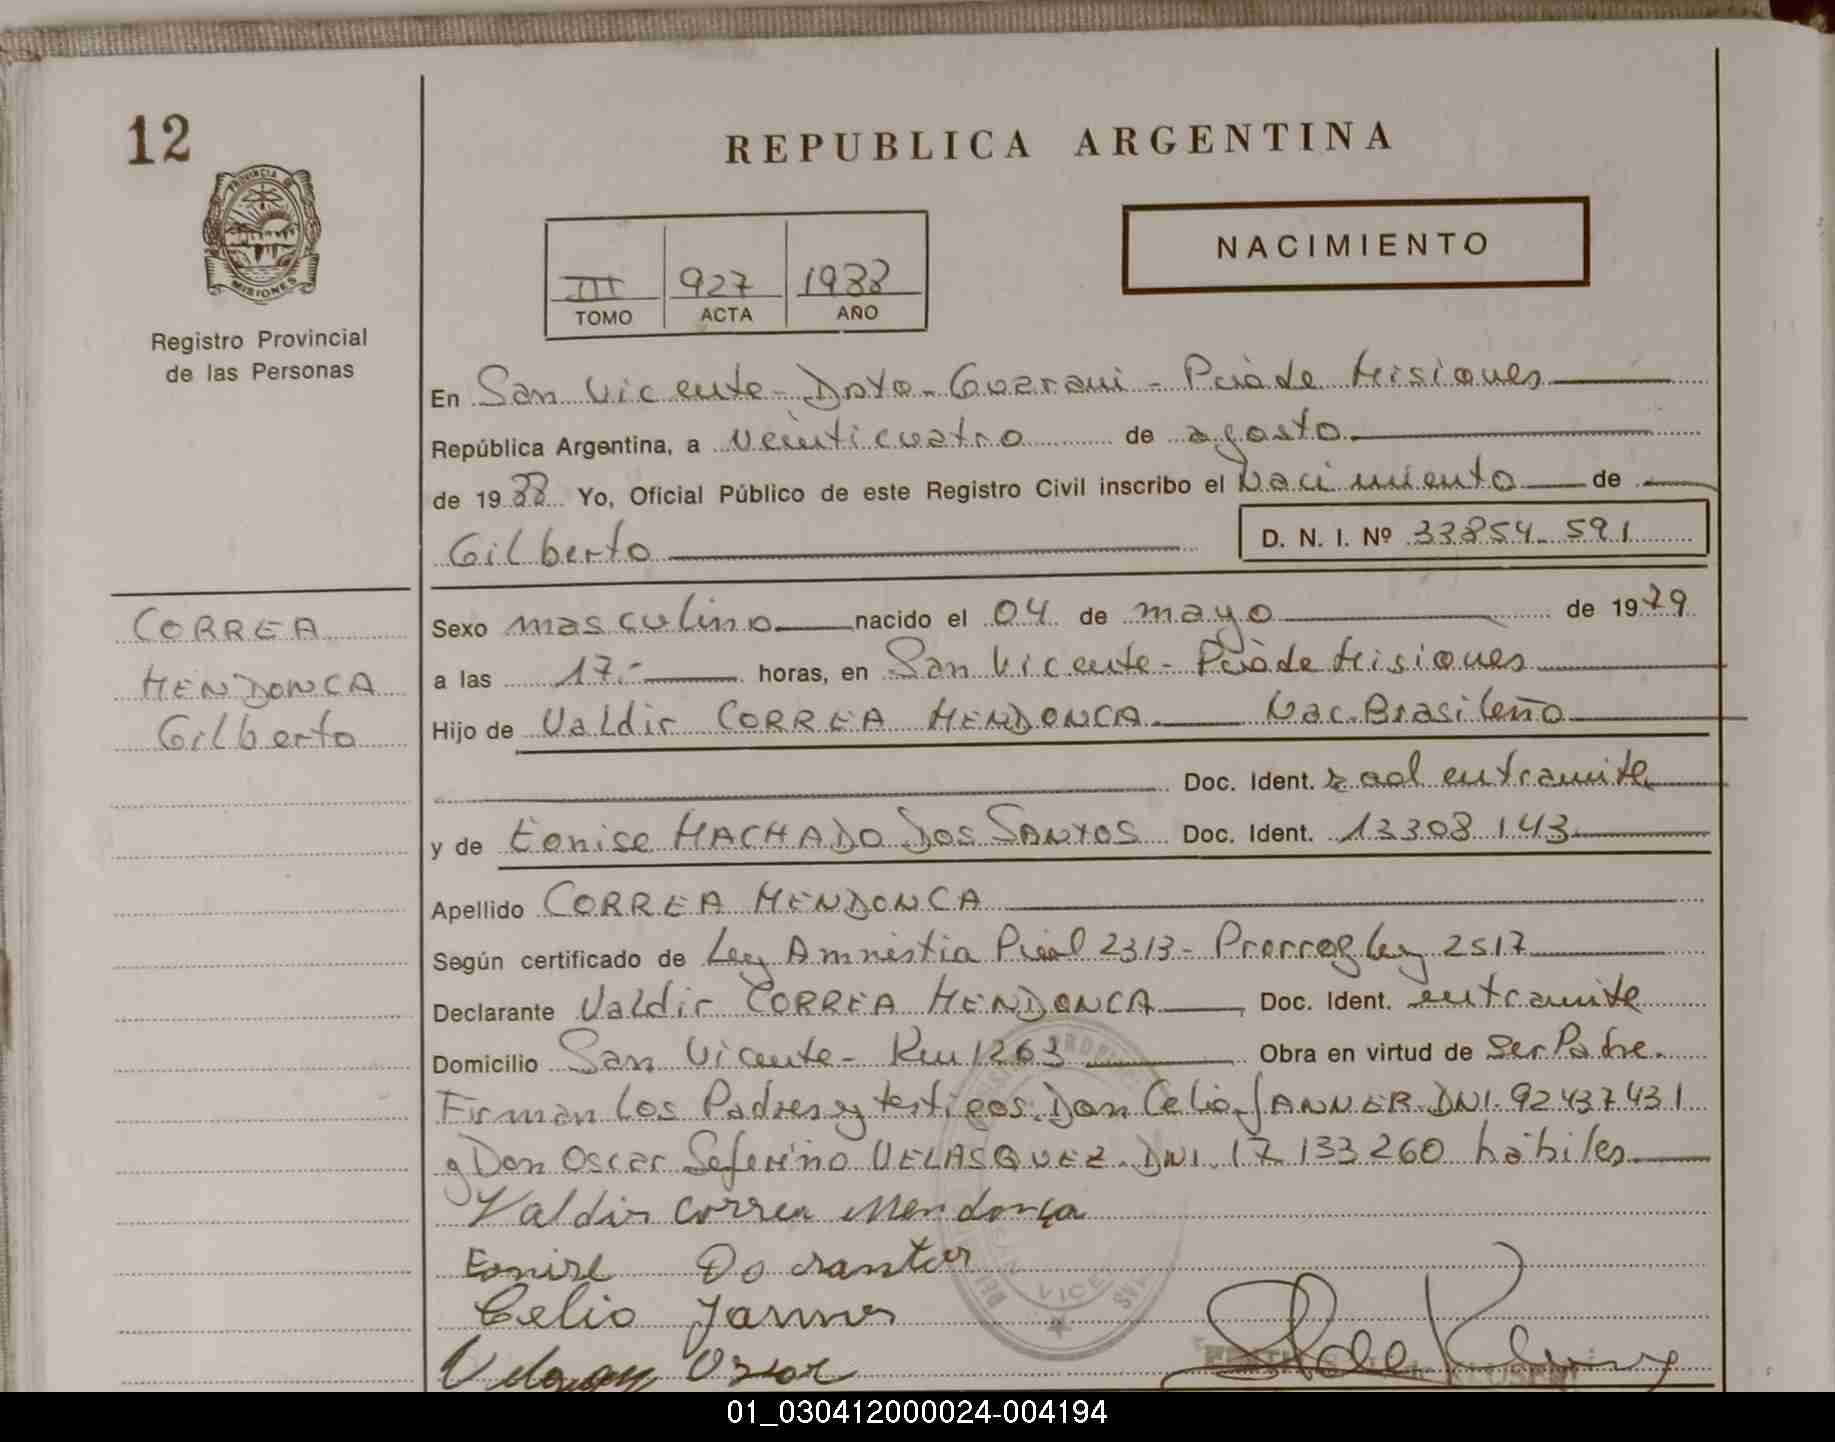 12
REPUBLICA ARGENTINA
PROVINCIA DE
MISIONES
Registro Provincial
de las Personas
NACIMIENTO
III 927 1988
TOMO ACTA AÑO
En San Vicente - Dpto - Guarani - Pcia de Misiones
República Argentina, a veinticuatro de agosto
de 1988 Yo, Oficial Público de este Registro Civil inscribo el Nacimiento de
Gilberto
D. N. I. Nº 33854-591
CORREA
MENDONCA
Gilberto
Sexo masculino nacido el 04 de mayo de 1979
a las 17.- horas, en San Vicente - Pcia de Misiones
Hijo de Valdir CORREA MENDONCA Nac. Brasileño
Doc. Ident. rad en tramite
y de Eonise MACHADO DOS SANTOS Doc. Ident. 13308143
Apellido CORREA MENDONCA
Según certificado de Ley Amnistia Pcial 2313 - Prorrog Ley 2517
Declarante Valdir CORREA MENDONCA Doc. Ident. en tramite
Domicilio San Vicente - Km 1263 Obra en virtud de Ser Padre.
Firman los Padres y testigos. Don Celio JANNER DNI. 92437431
y Don Oscar Seferino VELASQUEZ. DNI. 17133260 hábiles
Valdir correa Mendonça
Eonise Do santos
Celio
01_030412000024-004194